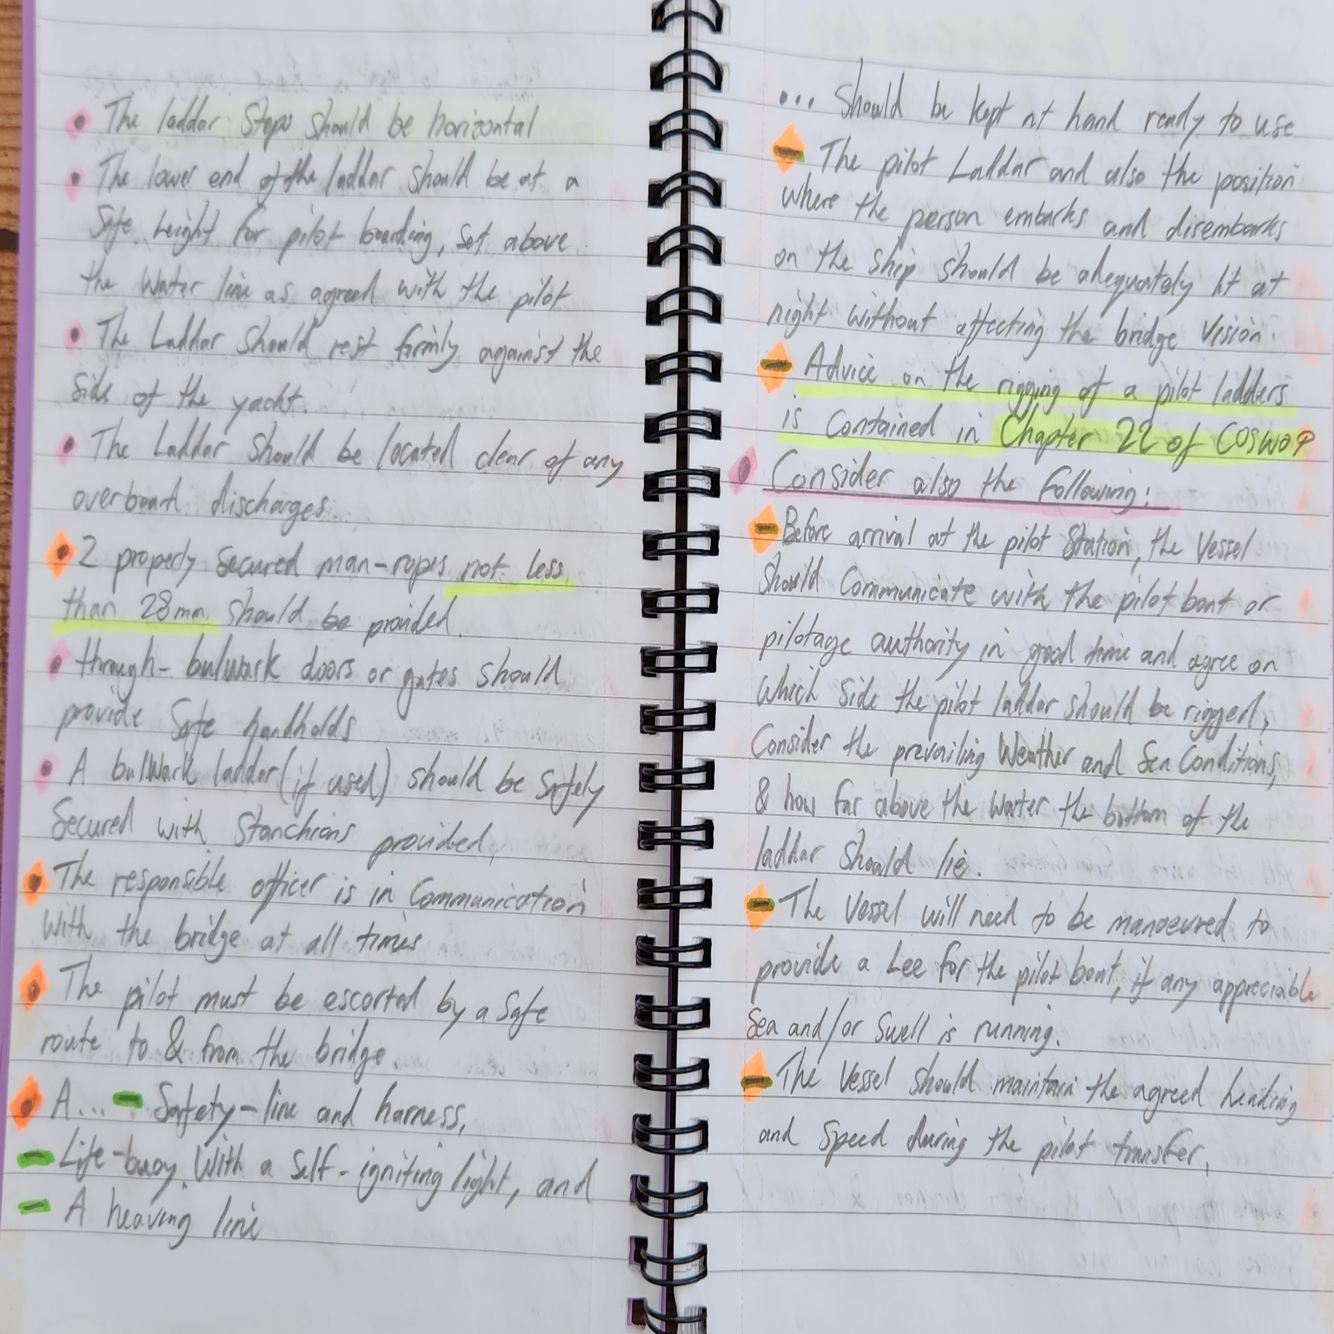 • The laddar Steps should be horizontal
• The lower end of the laddar should be at a
Safe height for pilot boarding, set above
the Water line as agreed with the pilot
• The Laddar should rest firmly against the
Side of the yacht.
• The Laddar should be located clear of any
overboard discharges.
• 2 properly Secured man-ropes not less
than 28mm should be provided.
• through-bulwark doors or gates should
provide Safe handholds
• A bullwark laddar (if used) should be Safely
Secured with Stanchions provided,
• The responsible officer is in Communication
With the bridge at all times
• The pilot must be escorted by a Safe
route to & from the bridge
• A... - Safety-line and harness,
- Life-buoy With a Self-igniting light, and
- A heaving line
... Should be kept at hand ready to use
- The pilot Laddar and also the position
Where the person embarks and disembarks
on the ship should be adequately lit at
night without affecting the bridge Vision.
- Advice on the rigging of a pilot ladders
is Contained in Chapter 22 of COSWOP
• Consider also the Following:
- Before arrival at the pilot Station, the Vessel
Should Communicate with the pilot boat or
pilotage authority in good time and agree on
Which Side the pilot laddar should be rigged,
Consider the prevailing Weather and Sea Conditions,
& how far above the Water the bottom of the
laddar Should lie.
- The Vessel will need to be manoeured to
provide a Lee for the pilot boat, if any appreciable
Sea and/or Swell is running.
- The Vessel should maintain the agreed heading
and Speed during the pilot transfer,